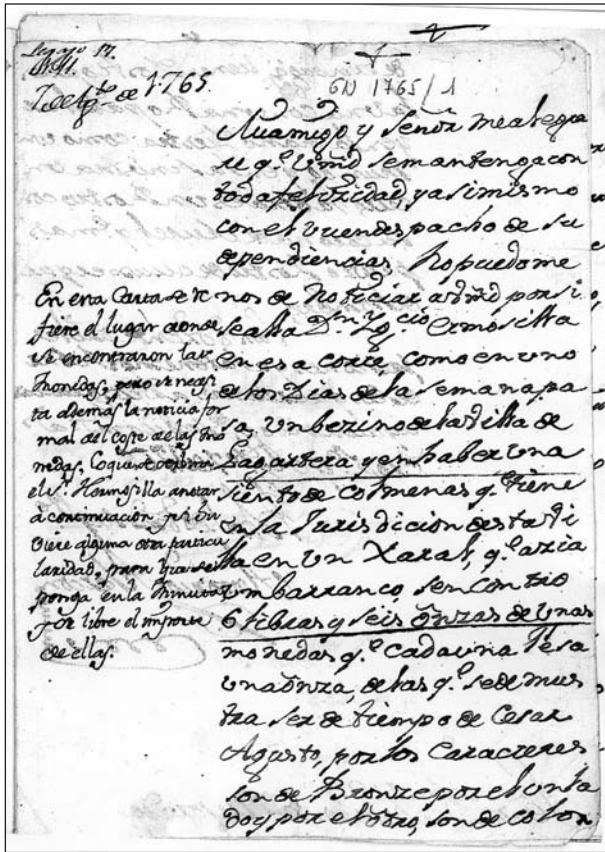 Legajo 17.
7 de Agto de 1765.
GN 1765/1
Muamigo y señor mealegra
re q.e Vmd semantenga con
toda felizidad, y asimismo
con el buen despacho de su
dependiencias Nopuedome
nos de Noticiar a Vmd por si
sealla Dn Ygcio Ermosilla
en esa corte, como en uno
de los Dias de la semana pa
sa, un bezino de la Villa de
Lagartera y en haber una
siento de colmenas q.e tiene
en la Jurisdicion desta Vi
lla en un Xaral, q.e azia
um barranco, sencontro
6 libras y seis onzas de unas
monedas q.e cada una Pesa
una onza, de las q.e sedemues
tra ser de tiempo de Cesar
Agusto, por los Caracteres
son de Bronze por el un la
do y por el otro, son de color
En esta Carta se re
fiere el lugar donde
se encontraron las
monedas, pero se necesi
ta además la noticia for
mal del coste de las mo
nedas,
el Sr. Hermosilla anotar
à continuacion si hu
viere alguna otra particu
laridad, para que se
ponga en la Minuta
libre el importe
de ellas.